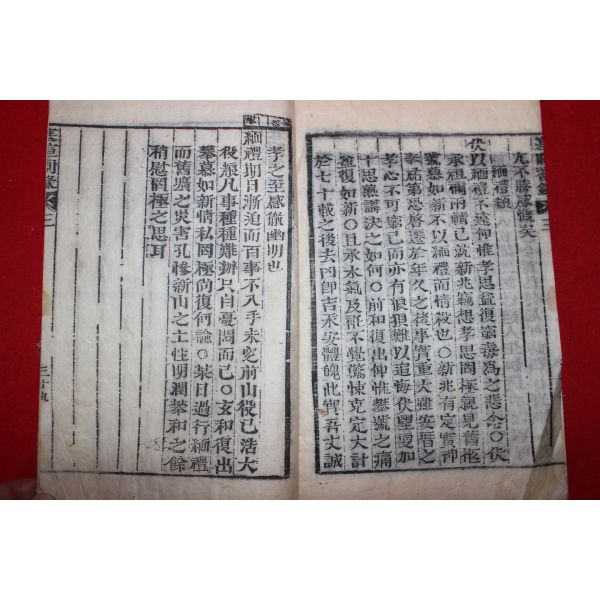 尤不勝感悔矣
緬禮類
伏以緬禮不遠仰惟孝思益復毒爲之悲念○伏
承已就新兆竊想孝思罔極親見舊柩
驚慕如新不以緬禮而情殺也○新兆有定實神
孝第恐啓遷於年久之後事重大雖安厝之
孝心不可窮已而亦有狼狽難以追悔伏望更加
十思熟講決之如何○前和復出仰惟攀號之痛
益復如新○且承水氣及不覺驚悚克定大計
於七十載之後去凶卽吉永安體魄此實吾丈誠
孝之至感徹幽明也
緬禮期日漸迫而百事不入手未前山役已浩大
役凡事種種難辦只自憂悶而已○玄和復出
攀慕如新情私罔極尚復何諭○某日過行緬禮
而舊壙之災害孔慘新山之土性明潤攀和之餘
稍慰罔極之思耳
三十九